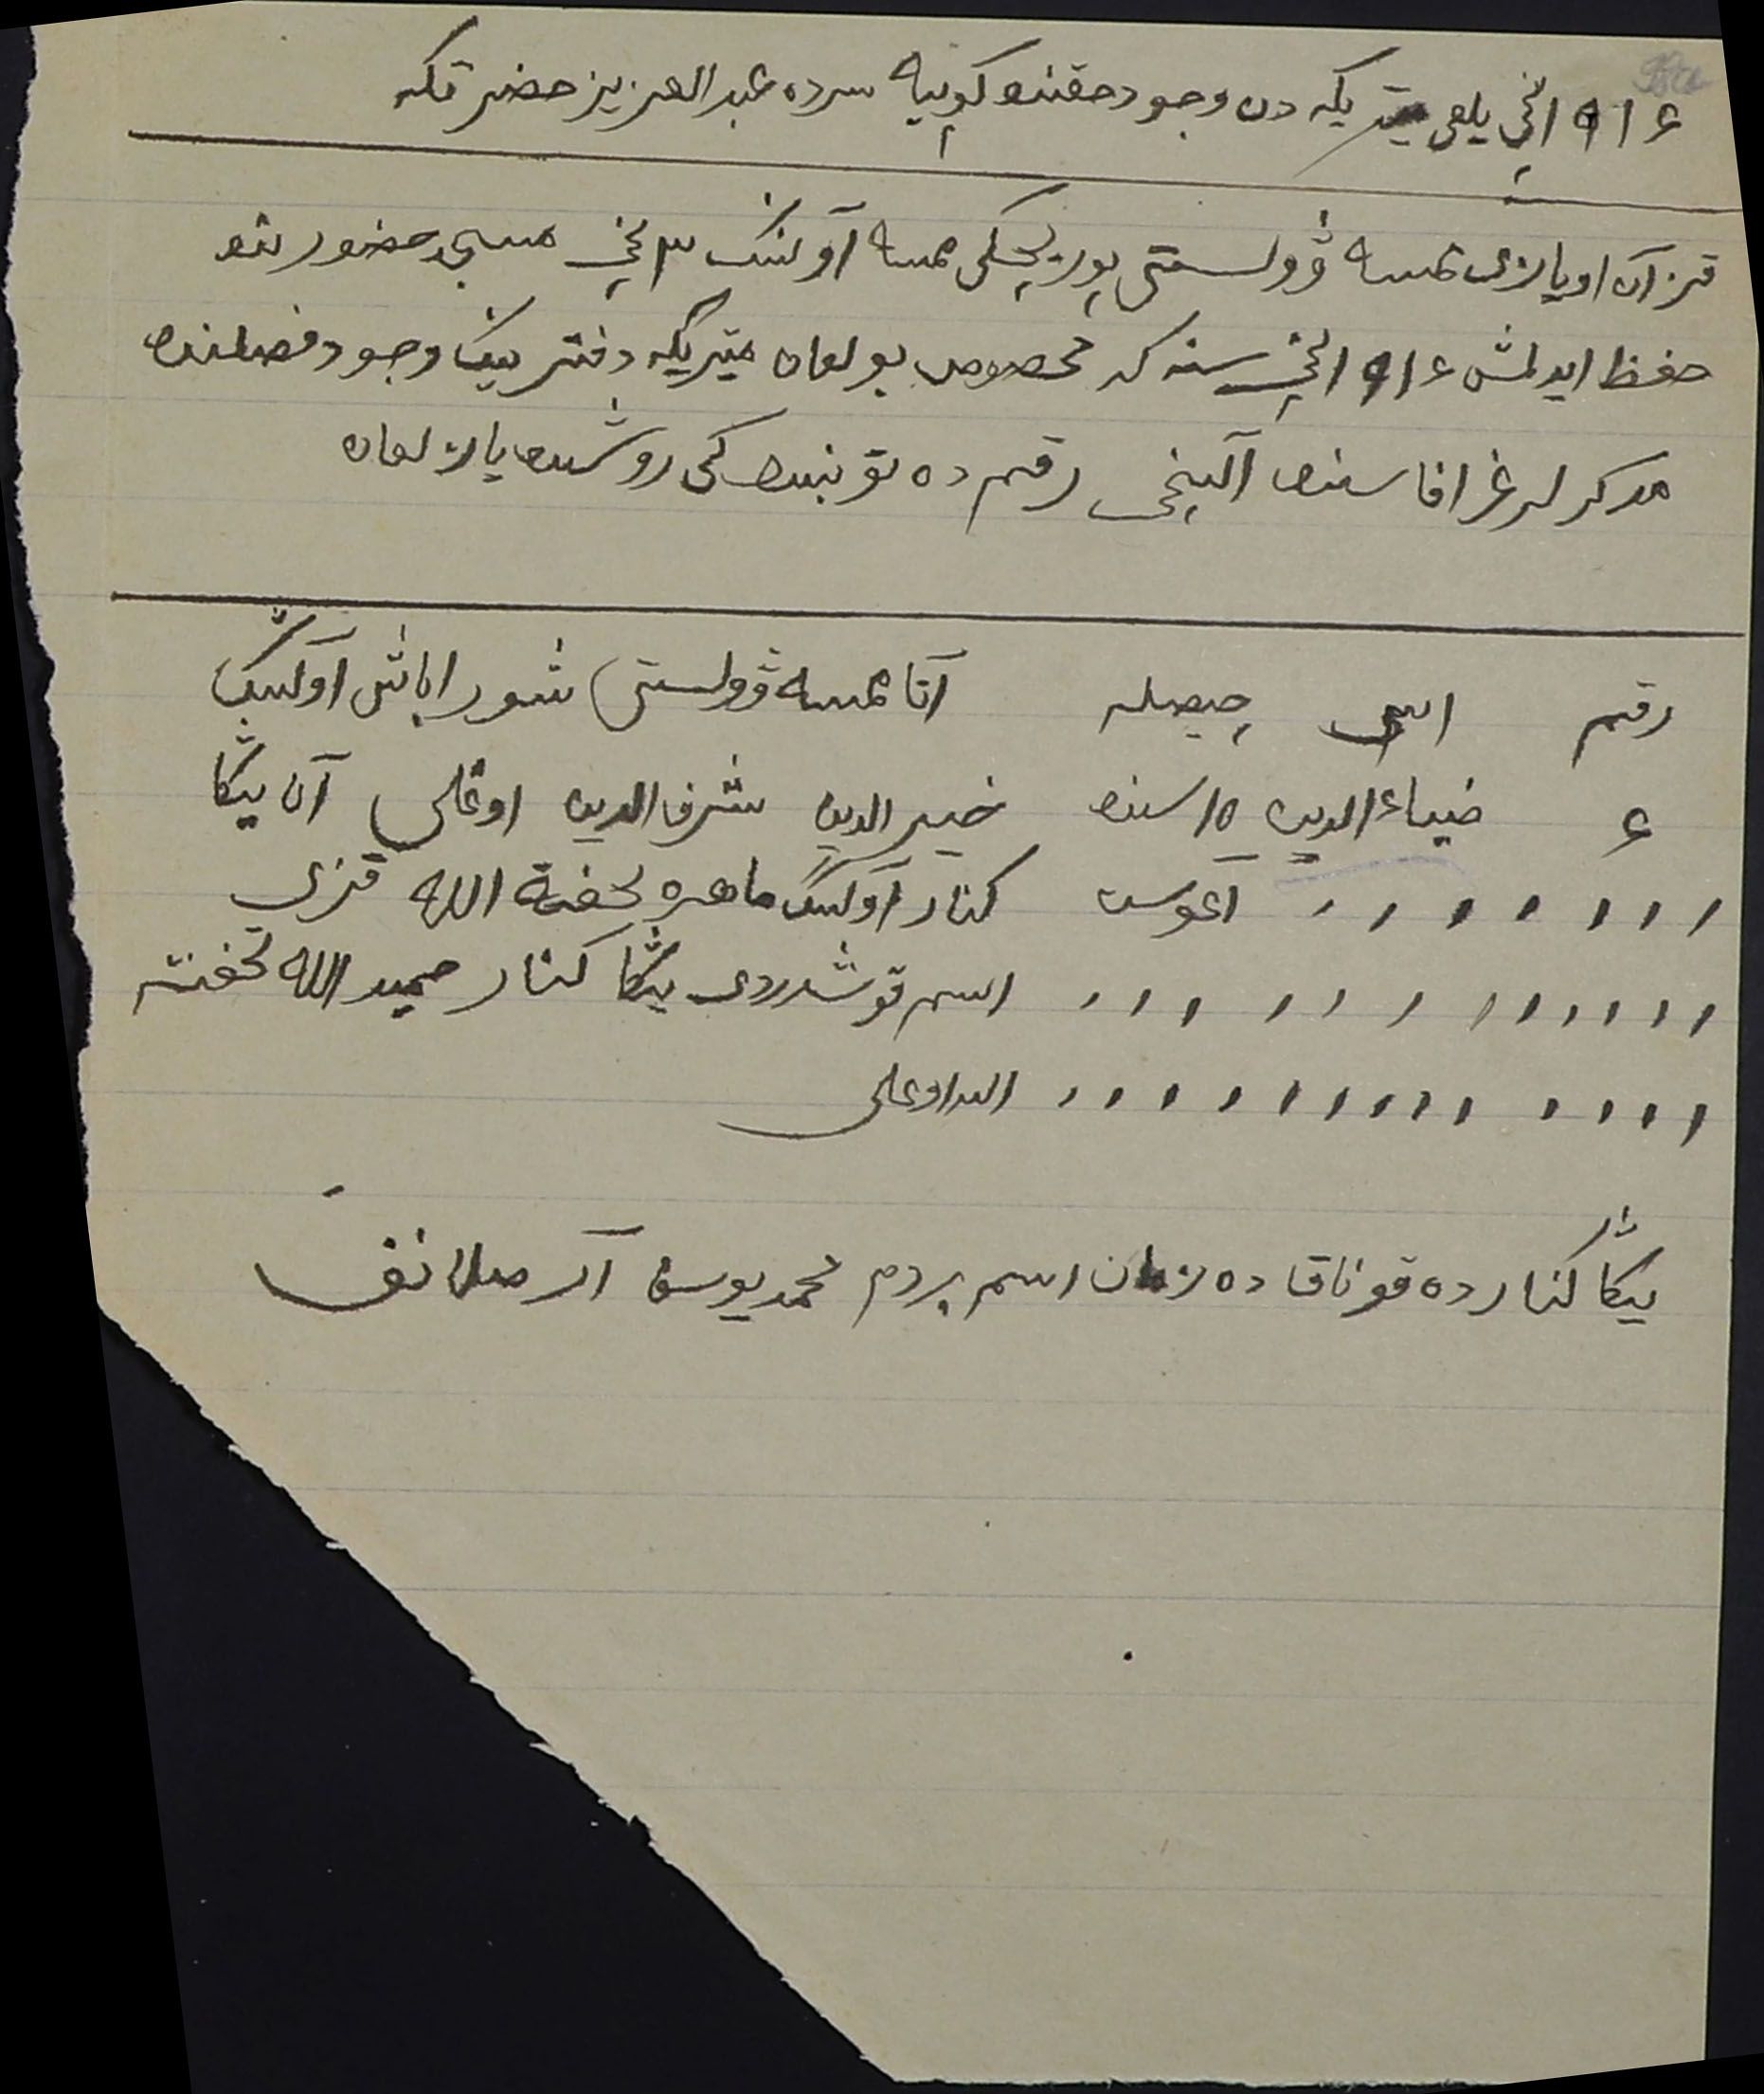 ٩١٦ انچی یلغی میتریکه دن وجود حقنده کوپیه سرده عبد العزیز حضرتکه
قزان اویازی ممسه ڤولستی یوریچکی ممسه آولننک ٣ نچی مسجد حضورنده
حفظ ایدلمش ٩١٦ انچی سنه که مخصوص بولغان میتریکه دفترینک وجود فصلنده
مذکرلر غرافاسنده آلتنچی رقم ده توبنده کی روشده یازلغان
رقم اسمی چیصله آتا ممسه ڤولستی شور اباش آولیننک
٦ ضیاء الدین ١٥ سنده خیر الدین شرف الدین اوغلی آن یڭا
آغوست کنار آولیننک ماهره تحفة الله قزی
اسم قوشدردی یڭا کنار حمید الله تحفة
الله اوغلی
یڭا کنارده قوناقده زمان اسم بردم محمد یوسف آرصلانف